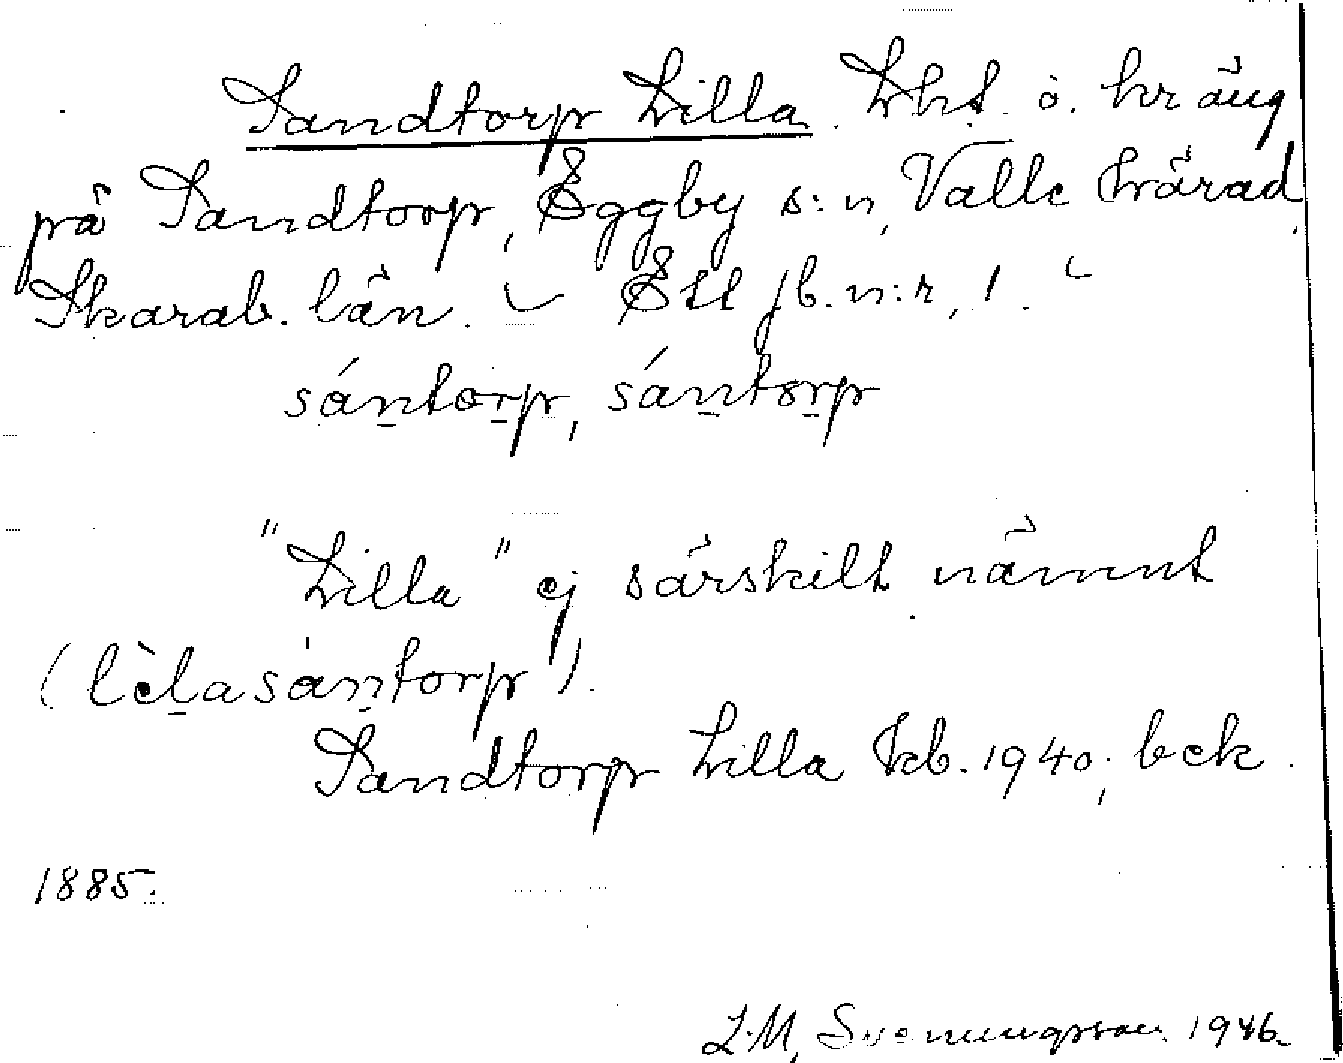 Sandtorp Lilla. Lht. o. hräng
på Sandtorp, Eggby s:n, Valle härad,
Skarab. län. Ett jb. n:r, 1.
sántorp, sántorp
"Lilla" ej särskilt nämnt
(lèlasántorp).
Sandtorp Lilla kb. 1940; bck.
1885.
L.M. Svenungsson 1946.